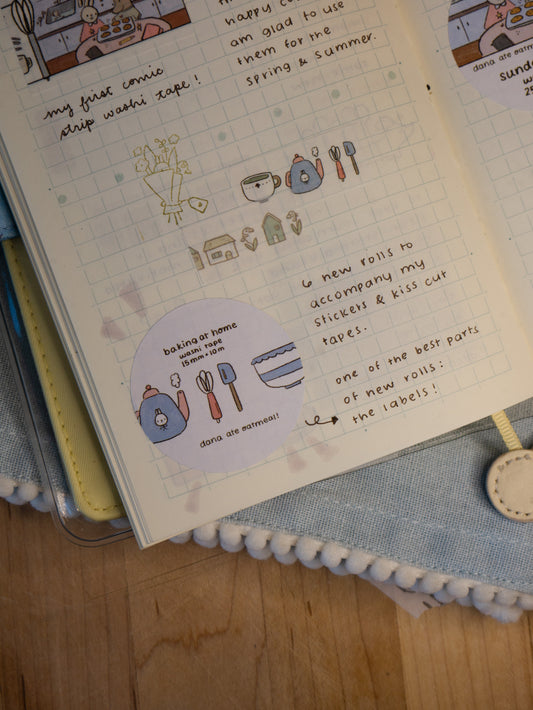 happy
am glad to use
them for the
spring & summer.
my first comic
strip washi tape!
dana ate oatmeal
6 new rolls to
accompany my
stickers & kiss cut
tapes.
baking at home
washi tape
15mm • 10m
dana ate oatmeal!
one of the best parts
of new rolls:
the labels!